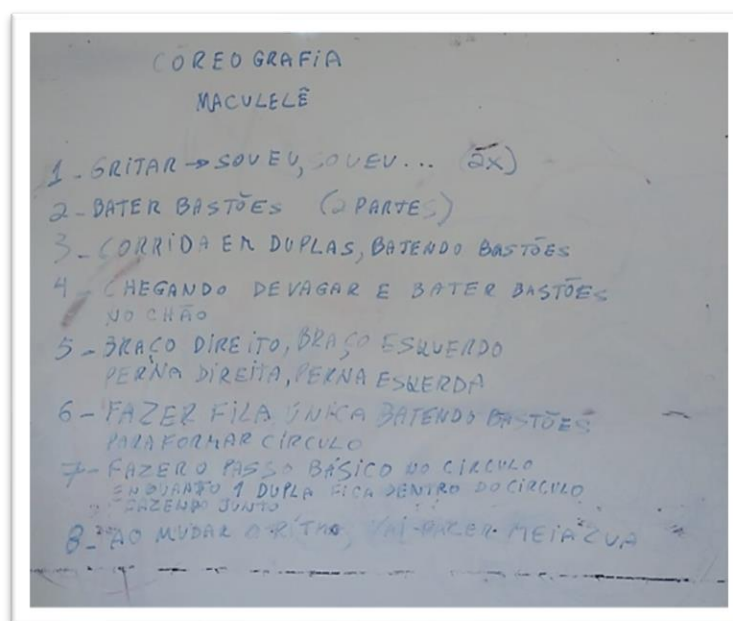 COREOGRAFIA
MACULELÊ
1 - GRITAR → SOU EU, SOU EU... (2X)
2 - BATER BASTÕES (2 PARTES)
3 - CORRIDA EM DUPLAS, BATENDO BASTÕES
4 - CHEGANDO DEVAGAR E BATER BASTÕES
NO CHÃO
5 - BRAÇO DIREITO, BRAÇO ESQUERDO
PERNA DIREITA, PERNA ESQUERDA
6 - FAZER FILA ÚNICA BATENDO BASTÕES
PARA FORMAR CÍRCULO
7 - FAZER O PASSO BÁSICO NO CÍRCULO
ENQUANTO 1 DUPLA FICA DENTRO DO CÍRCULO
FAZENDO JUNTO
8 - AO MUDAR O RITMO, VAI FAZER MEIA LUA